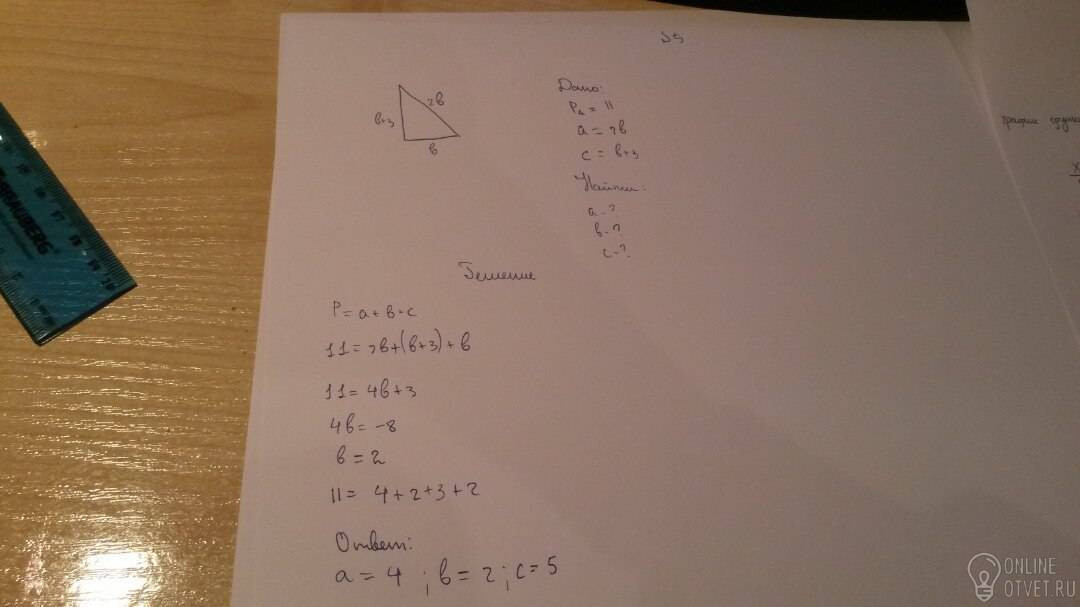 №5
2в
в+3
в
Дано:
P△ = 11
a = 2в
c = в+3
Найти:
a - ?
в - ?
c - ?
Решение
P = a + в + c
11 = 2в + (в+3) + в
11 = 4в + 3
4в = -8
в = 2
11 = 4 + 2 + 3 + 2
Ответ:
a = 4 ; в = 2 ; c = 5
BRAUBERG
график
ONLINE
OTVET.RU